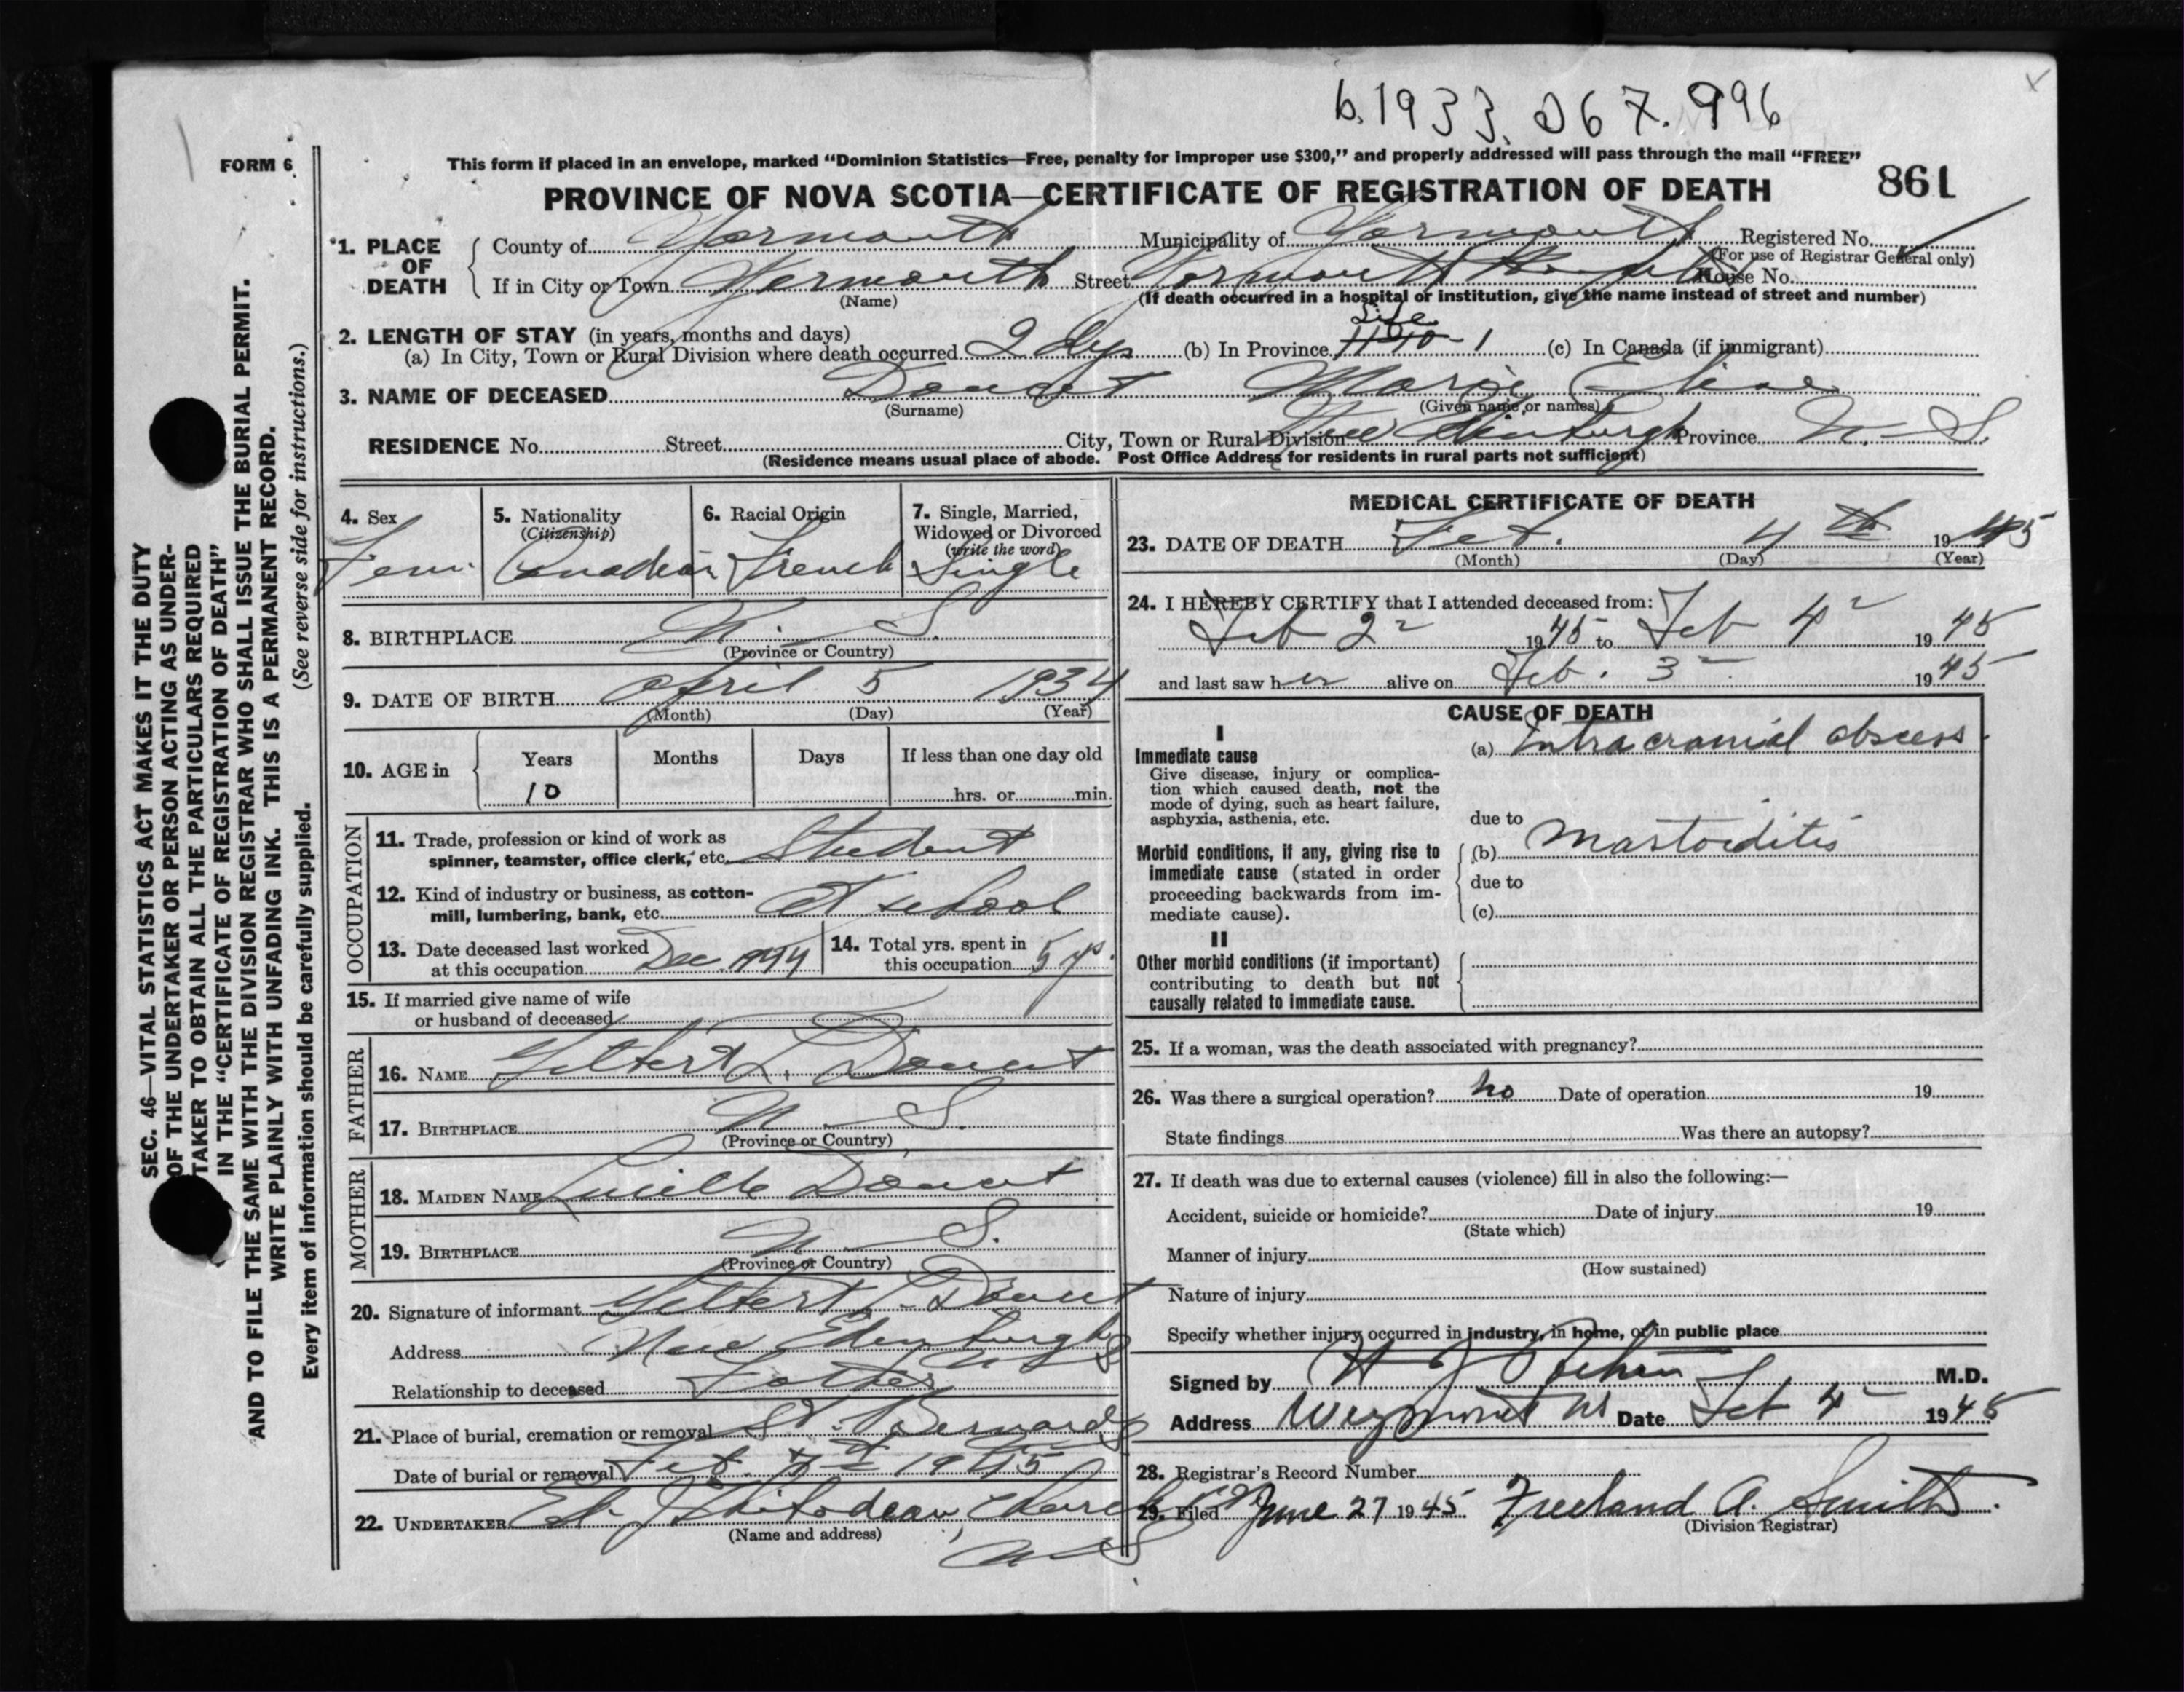 b.1933. 067. 996
FORM 6
This form if placed in an envelope, marked “Dominion Statistics—Free, penalty for improper use $300,” and properly addressed will pass through the mail “FREE”
PROVINCE OF NOVA SCOTIA—CERTIFICATE OF REGISTRATION OF DEATH 861
1. PLACE OF DEATH
County of Yarmouth Municipality of Yarmouth Registered No.
(For use of Registrar General only)
If in City or Town Yarmouth Street Yarmouth Hospital House No.
(Name) (If death occurred in a hospital or institution, give the name instead of street and number)
2. LENGTH OF STAY (in years, months and days) Life
(a) In City, Town or Rural Division where death occurred 2 dys (b) In Province (c) In Canada (if immigrant)
3. NAME OF DECEASED Doucet Marie Elise
(Surname) (Given name or names)
RESIDENCE No. Street City, Town or Rural Division New Edinburgh Province N. S.
(Residence means usual place of abode. Post Office Address for residents in rural parts not sufficient)
4. Sex Fem.
5. Nationality (Citizenship) Canadian
6. Racial Origin French
7. Single, Married, Widowed or Divorced (write the word) Single
8. BIRTHPLACE N. S.
(Province or Country)
9. DATE OF BIRTH April 5 1934
(Month) (Day) (Year)
10. AGE in Years Months Days If less than one day old
10 hrs. or min.
OCCUPATION
11. Trade, profession or kind of work as
spinner, teamster, office clerk, etc. Student
12. Kind of industry or business, as cotton-
mill, lumbering, bank, etc. At school
13. Date deceased last worked
at this occupation Dec. 1944
14. Total yrs. spent in
this occupation 5 yrs.
15. If married give name of wife
or husband of deceased
FATHER
16. NAME Gilbert L. Doucet
17. BIRTHPLACE N. S.
(Province or Country)
MOTHER
18. MAIDEN NAME Lucille Doucet
19. BIRTHPLACE N. S.
(Province or Country)
20. Signature of informant Gilbert L. Doucet
Address New Edinburgh N S
Relationship to deceased Father
21. Place of burial, cremation or removal St. Bernards
Date of burial or removal Feb. 1945
22. UNDERTAKER Thibodeau, Church N S
(Name and address)
MEDICAL CERTIFICATE OF DEATH
23. DATE OF DEATH Feb. 4th 1945
(Month) (Day) (Year)
24. I HEREBY CERTIFY that I attended deceased from:
Feb 2 1945 to Feb 4 1945
and last saw her alive on Feb. 3 1945
CAUSE OF DEATH
I
Immediate cause
Give disease, injury or complica-
tion which caused death, not the
mode of dying, such as heart failure,
asphyxia, asthenia, etc.
(a) Intracranial abscess.
due to
Morbid conditions, if any, giving rise to
immediate cause (stated in order
proceeding backwards from im-
mediate cause).
(b) Mastoiditis
due to
(c)
II
Other morbid conditions (if important)
contributing to death but not
causally related to immediate cause.
25. If a woman, was the death associated with pregnancy?
26. Was there a surgical operation? no Date of operation 19
State findings Was there an autopsy?
27. If death was due to external causes (violence) fill in also the following:—
Accident, suicide or homicide? Date of injury 19
(State which)
Manner of injury
(How sustained)
Nature of injury
Specify whether injury occurred in industry, in home, or in public place
Signed by H J Pothier M.D.
Address Weymouth NS Date Feb 4 1945
28. Registrar's Record Number
29. Filed June 27 1945 Freeland A. Smith.
(Division Registrar)
SEC. 46—VITAL STATISTICS ACT MAKES IT THE DUTY
OF THE UNDERTAKER OR PERSON ACTING AS UNDER-
TAKER TO OBTAIN ALL THE PARTICULARS REQUIRED
IN THE “CERTIFICATE OF REGISTRATION OF DEATH”
AND TO FILE THE SAME WITH THE DIVISION REGISTRAR WHO SHALL ISSUE THE BURIAL PERMIT.
WRITE PLAINLY WITH UNFADING INK. THIS IS A PERMANENT RECORD.
Every item of information should be carefully supplied. (See reverse side for instructions.)